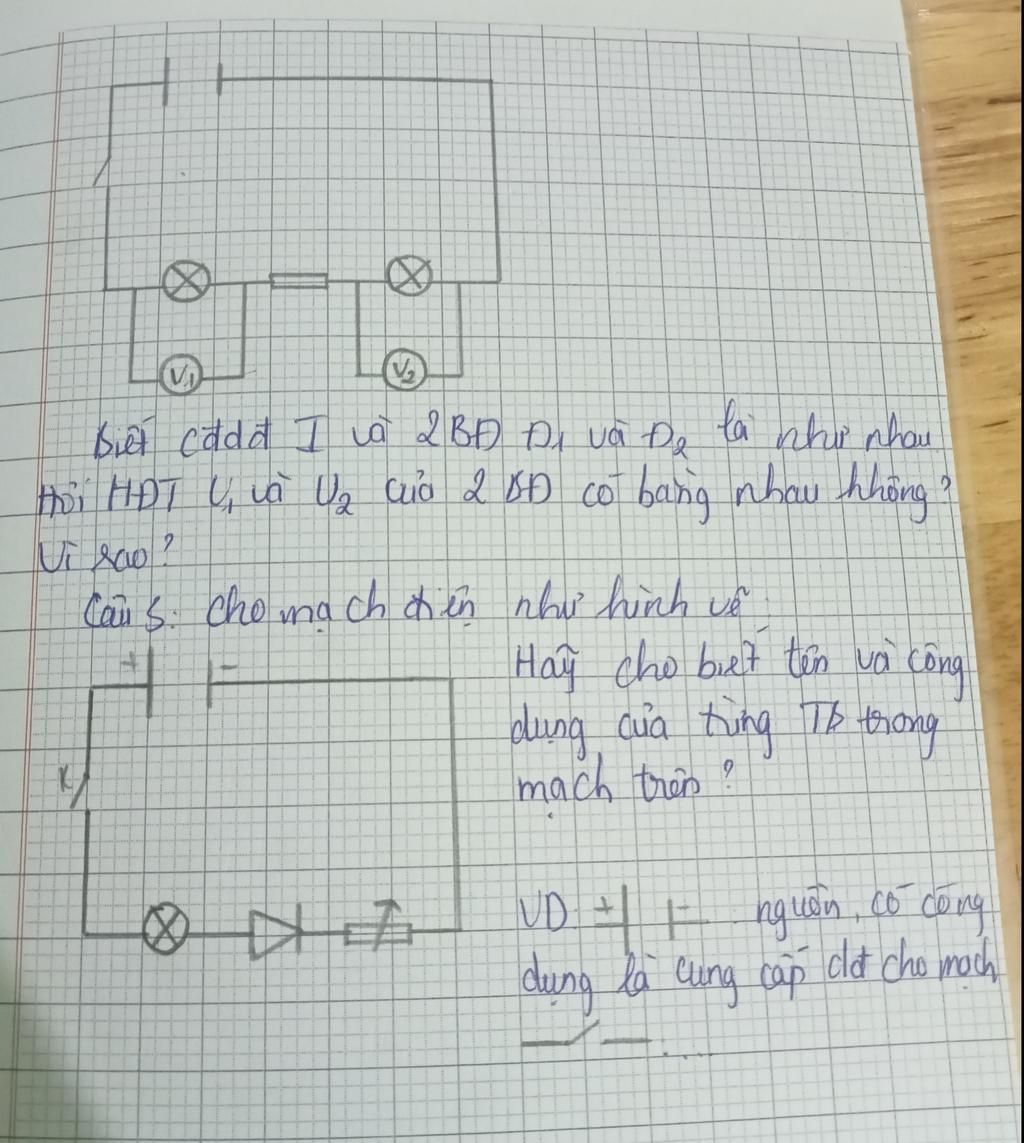 V1 V2
Biết cđdđ I và 2BĐ Đ1 và Đ2 là như nhau
Hỏi HĐT U1 và U2 của 2 BĐ có bằng nhau không?
Vì sao?
Câu 5: Cho mạch điện như hình vẽ.
+ - Hãy cho biết tên và công
dụng của từng TB trong
K
mạch trên?
VD: + - nguồn, có công
dụng là cung cấp dđ cho mạch
.....